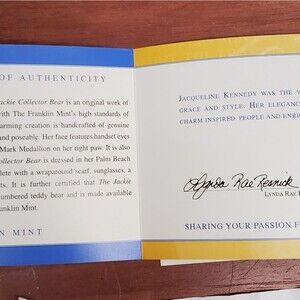 OF AUTHENTICITY
Jackie Collector Bear is an original work of
with The Franklin Mint's high standards of
arming creation is handcrafted of genuine
and poseable. Her face features handset eyes
Mark Medallion on her right paw. It is also
Collector Bear is dressed in her Palm Beach
lete with a wraparound scarf, sunglasses, a
ts. It is further certified that The Jackie
umbered teddy bear and is made available
anklin Mint.
N MINT
JACQUELINE KENNEDY WAS THE V
GRACE AND STYLE. HER ELEGANC
CHARM INSPIRED PEOPLE AND ENRIC
Lynda Rae Resnick
LYNDA RAE R
SHARING YOUR PASSION F